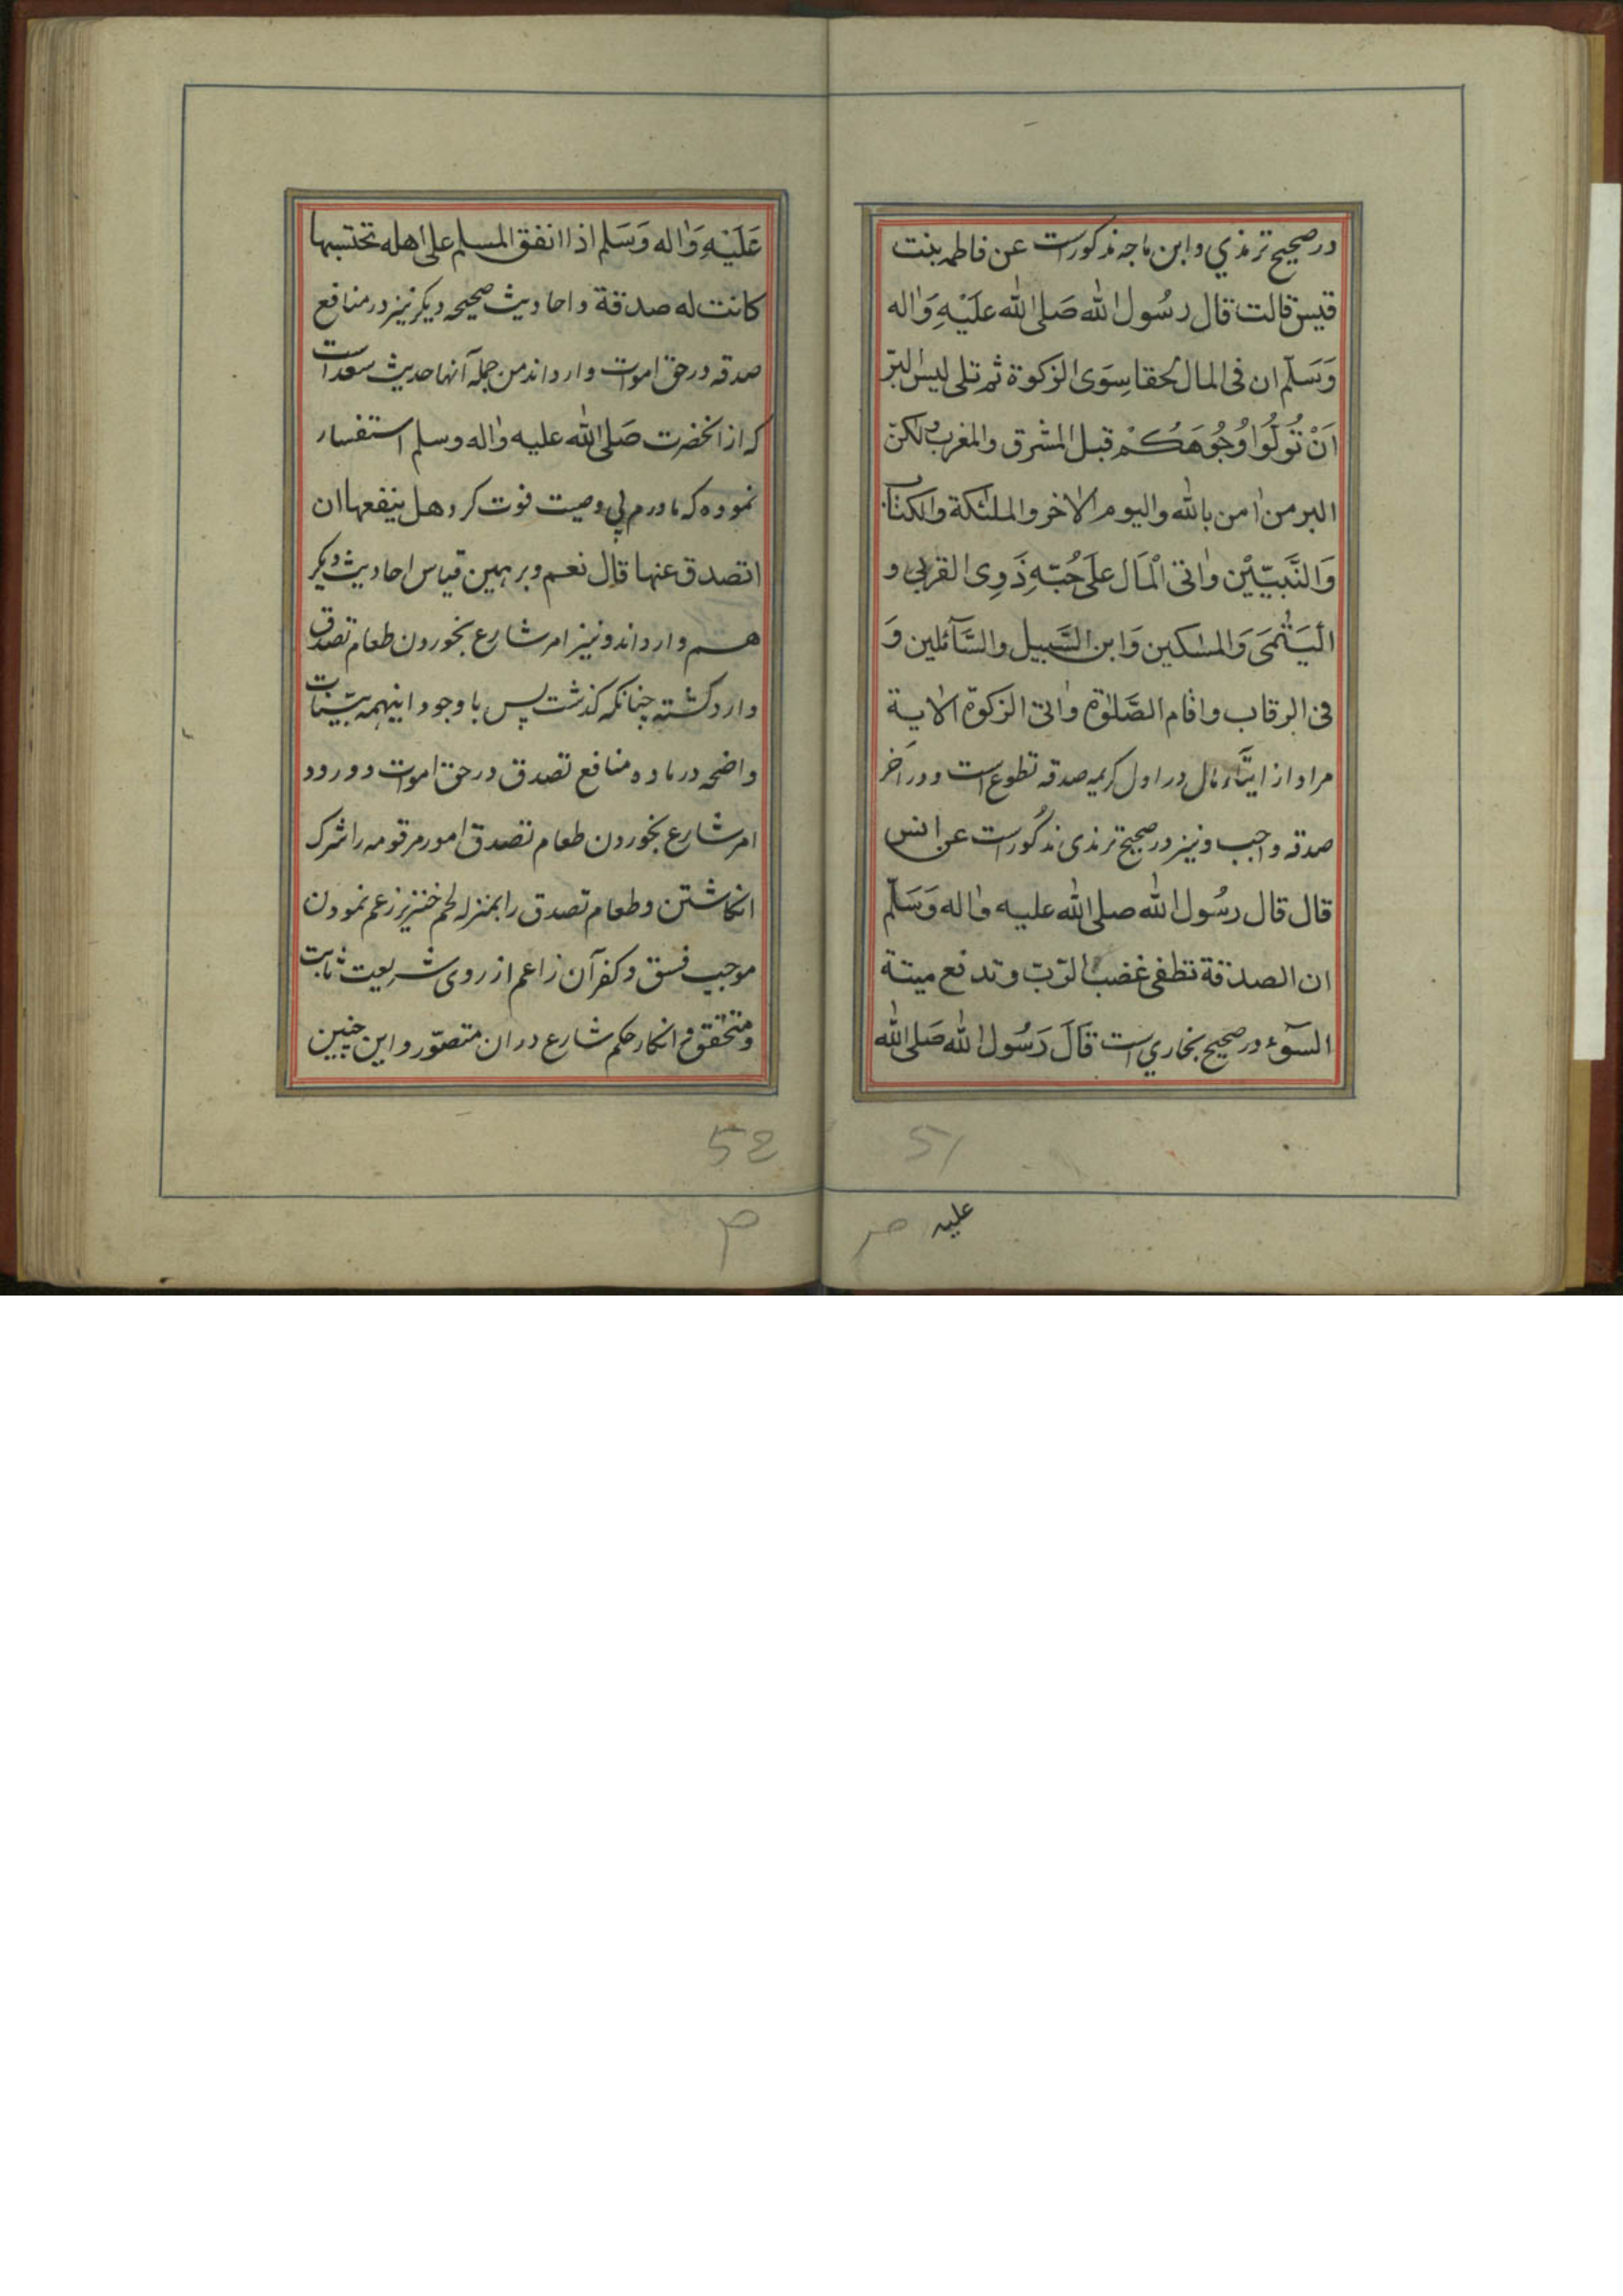 در صحیح ترمذي و ابن ماجه مذکورست عن فاطمه بنت
قیس قالت قال رسُول الله صَلی الله علَیْهِ وَاٰله
وَسَلّم ان فی المال لحقا سِوَی الزکوة ثم تلی لیس البرّ
اَنْ تُوَلُّوا وُجُوهَكُمْ قبل المشرق والمغرب ولکنّ
البر من اٰمن بالله والیوم الاٰخر والملئکة والکتاب
وَالنَّبیّیْن واٰتی الْمَال علَی حُبّهِ ذَوِی القربی و
الْیَتٰمَی وَالمسٰکین وَابن السَّبیل والسَّآئلین وَ
فی الرقاب واقام الصَّلٰوة واٰتی الزکوة الاٰیة
مراد از ایتآء مال در اول کریمه صدقه تطوع است و در آخر
صدقه واجب و نیز در صحیح ترمذی مذکورست عن انس
قال قال رسُول الله صلی الله علیه واٰله وَسَلّم
ان الصدقة تطفی غضب الرّبّ وتدفع میتة
السّوٓء در صحیح بخاري است قَالَ رَسُول الله صَلی الله
51
علیه
عَلَیْهِ وَاٰله وَسَلم اذا انفق المسلم علی اهله تحتسبها
کانت له صدقة و احادیث صحیحه دیکر نیز در منافع
صدقه در حق اموات وارداند من جمله آنها حدیث سعد است
که از انحضرت صَلی الله علیه واٰله وسلم استفسار
نموده که مادرم بی وصیت فوت کرد هل ینفعها ان
اتصدق عنها قال نعم و بر همین قیاس احادیث دیکر
هم وارداند و نیز امر شارع بخوردن طعام تصدق
وارد کشته چنانکه کذشت پس با وجود اینهمه بیّنات
واضحه در ماده منافع تصدق در حق اموات و ورود
امر شارع بخوردن طعام تصدق امور مرقومه را شرک
انکاشتن و طعام تصدق را بمنزله لحم خنزیر زعم نمودن
موجب فسق و کفر آن زاعم از روی شریعت ثابت
و متحقق و انکار حکم شارع دران متصوّر و این چنین
52